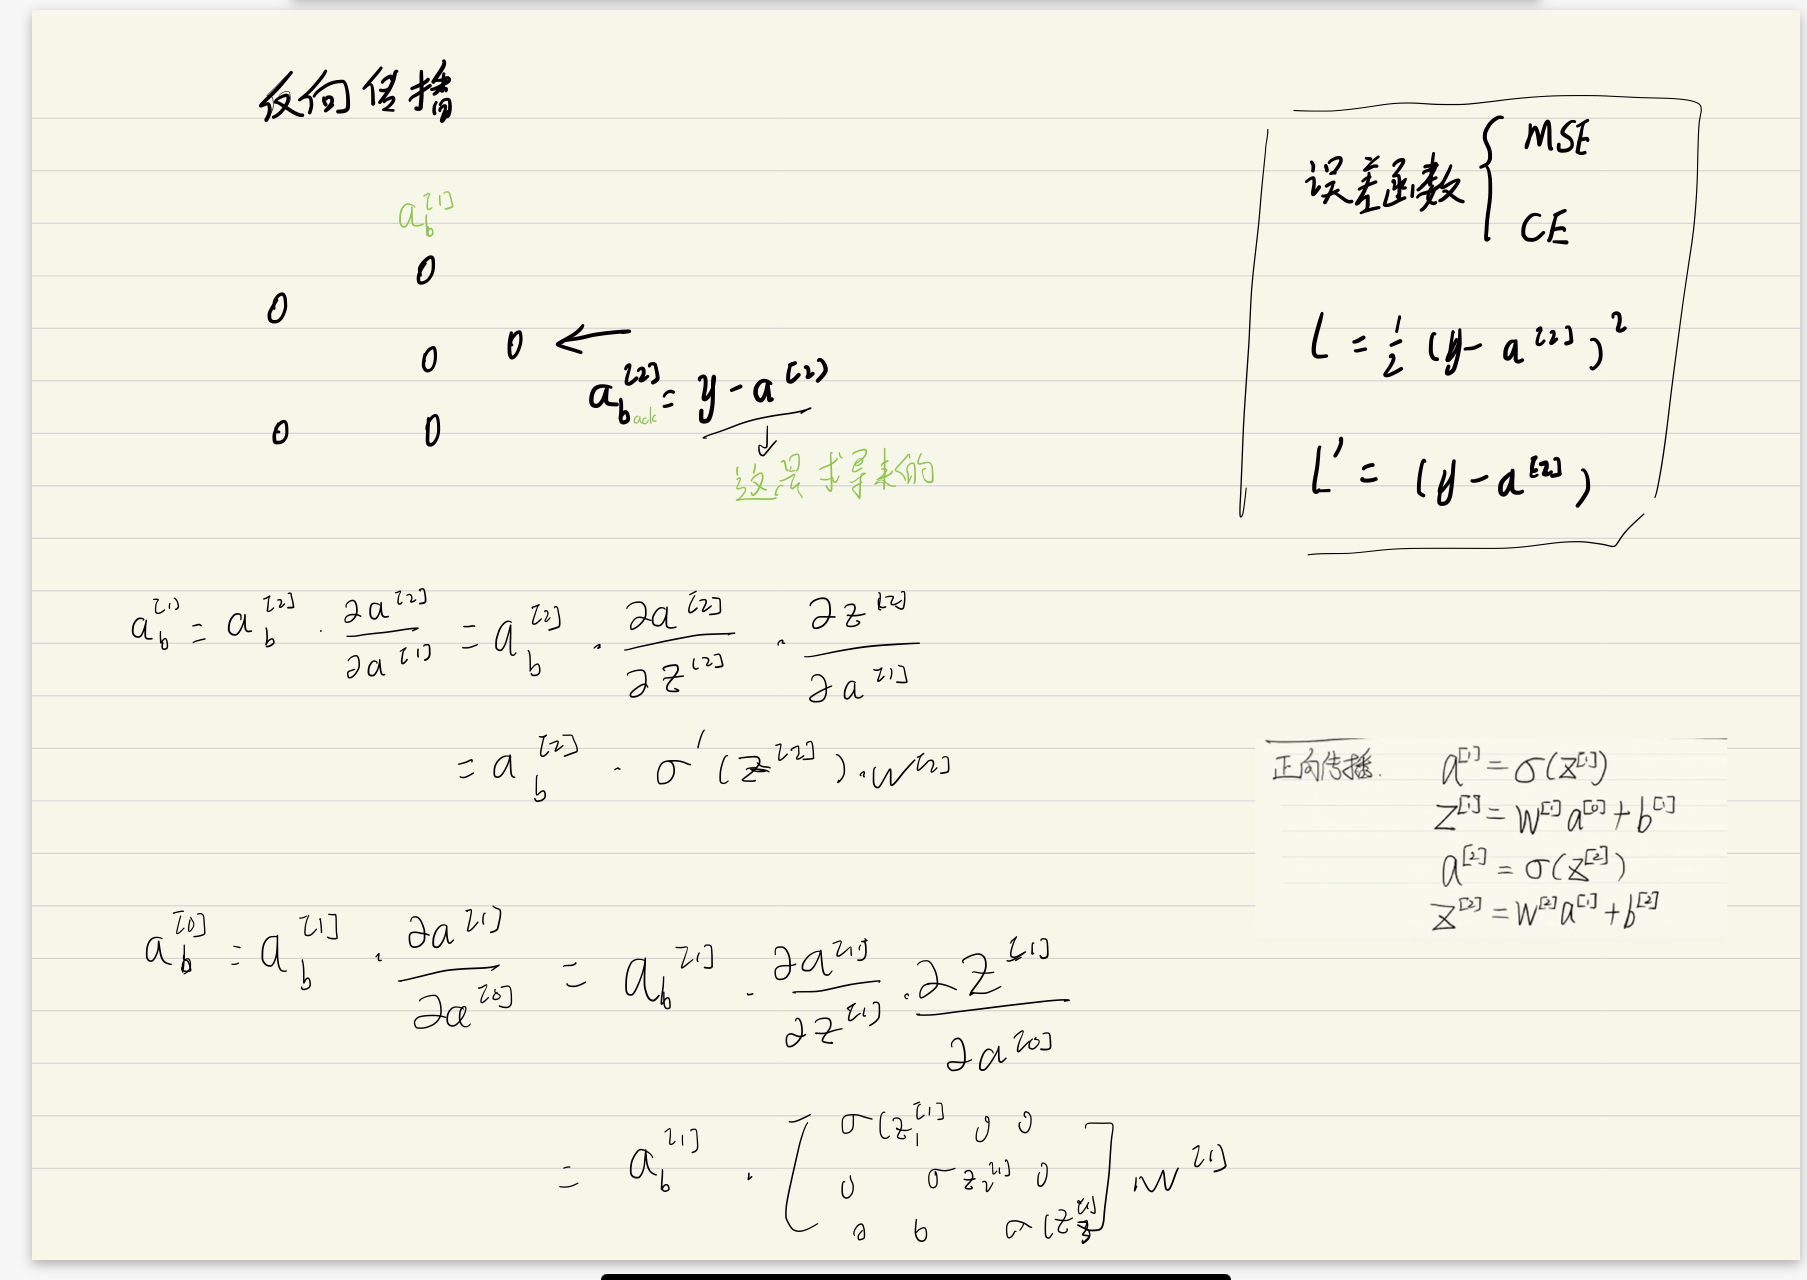 反向传播
误差函数 { MSE
CE
a_b^{[1]}
0
0
0 0
0 0
a_{back}^{[2]} = y - a^{[2]}
这是求导来的
L = \frac{1}{2} (y - a^{[2]})^2
L' = (y - a^{[2]})
a_b^{[1]} = a_b^{[2]} · \frac{∂a^{[2]}}{∂a^{[1]}} = a_b^{[2]} · \frac{∂a^{[2]}}{∂z^{[2]}} · \frac{∂z^{[2]}}{∂a^{[1]}}
= a_b^{[2]} · σ'(z^{[2]}) · w^{[2]}
正向传播. a^{[1]} = σ(z^{[1]})
z^{[1]} = w^{[1]} a^{[0]} + b^{[1]}
a^{[2]} = σ(z^{[2]})
z^{[2]} = w^{[2]} a^{[1]} + b^{[2]}
a_b^{[0]} = a_b^{[1]} · \frac{∂a^{[1]}}{∂a^{[0]}} = a_b^{[1]} · \frac{∂a^{[1]}}{∂z^{[1]}} · \frac{∂z^{[1]}}{∂a^{[0]}}
= a_b^{[1]} · [ σ(z_1^{[1]} 0 0
0 σ z_2^{[1]} 0
0 0 σ(z_3^{[1]} ] · w^{[1]}